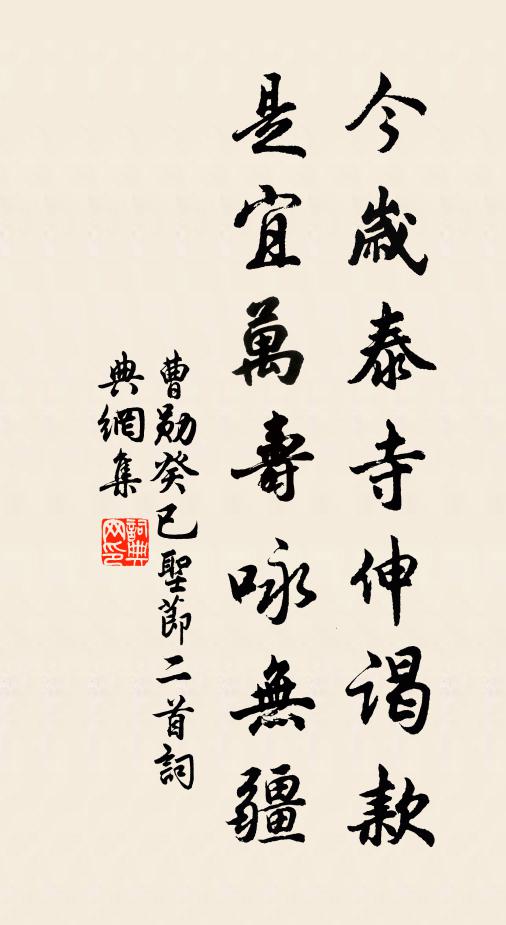 今歲泰寺伸謁款
是宜萬壽咏無疆
曹勛癸巳聖節二首詞
典網集
詞典網印